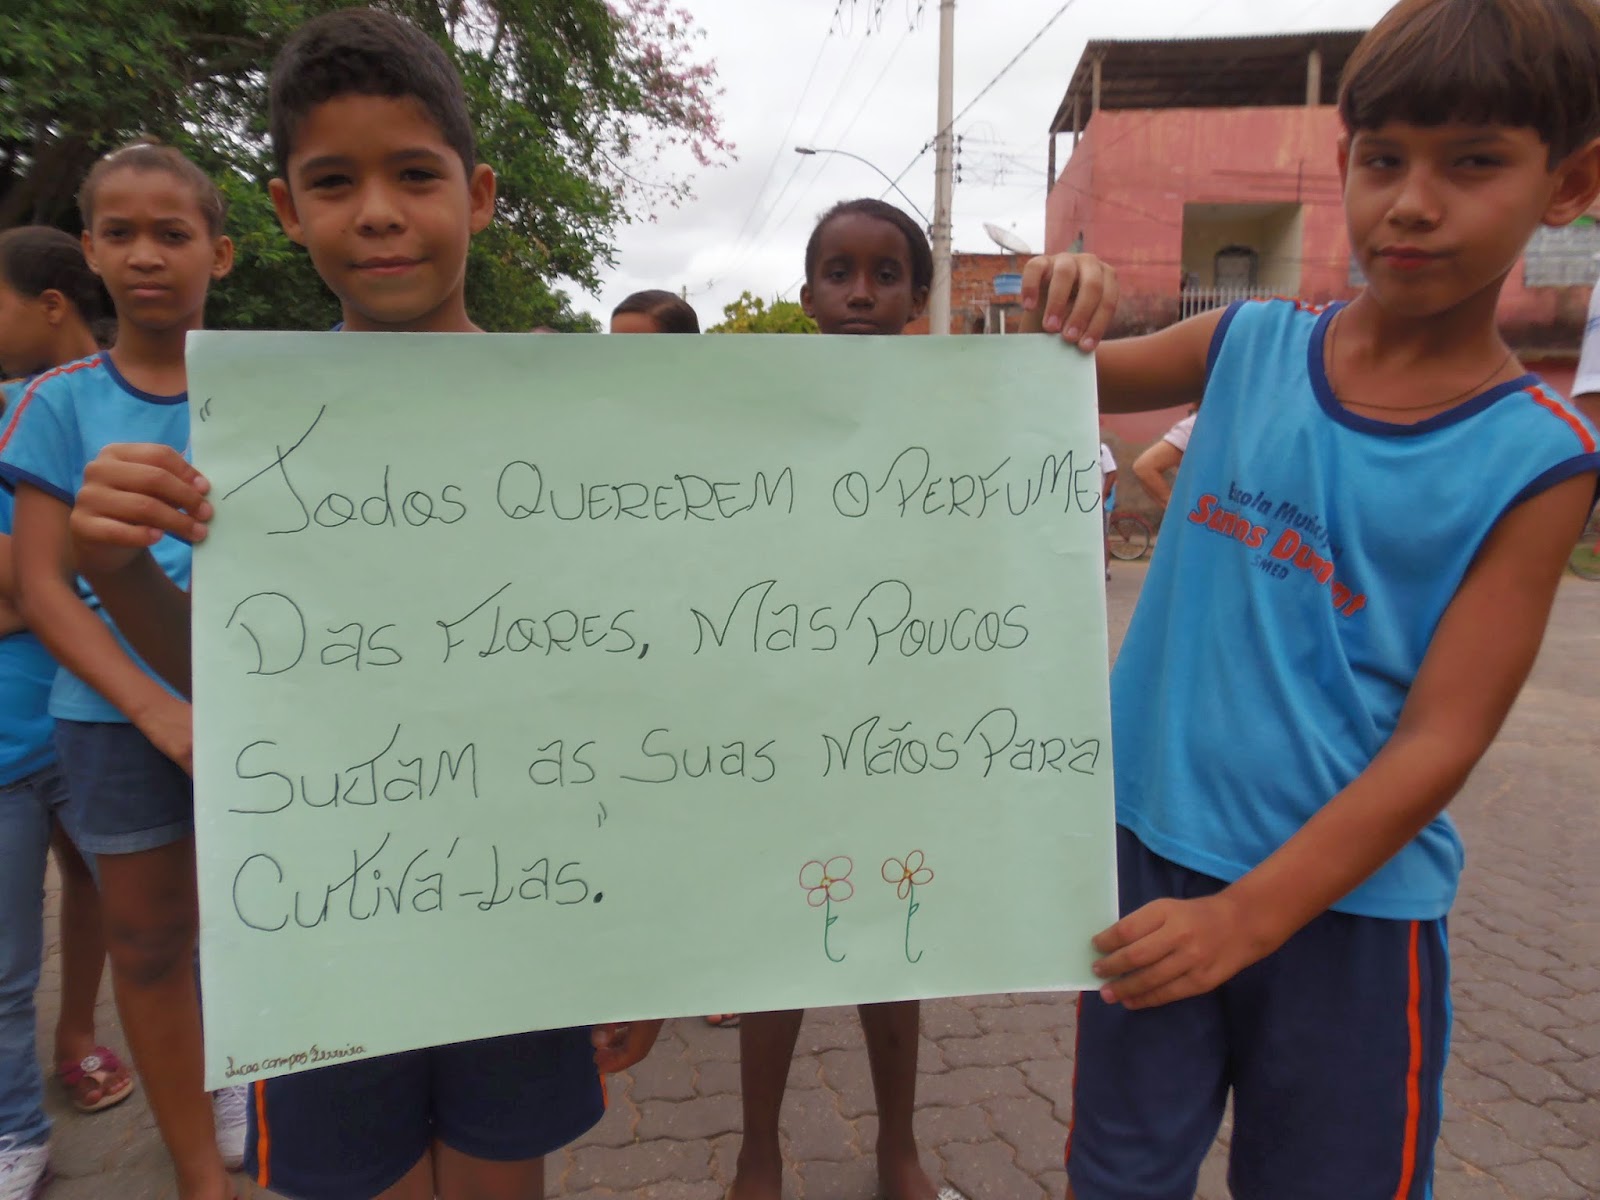 "Todos QUEREREM O PERFUME
Das FLORES, Mas Poucos
SUJAM as Suas Mãos Para
Cutivá-Las."
Lucas campos Ferreira
Escola Municipal
Santos Dumont
SMED